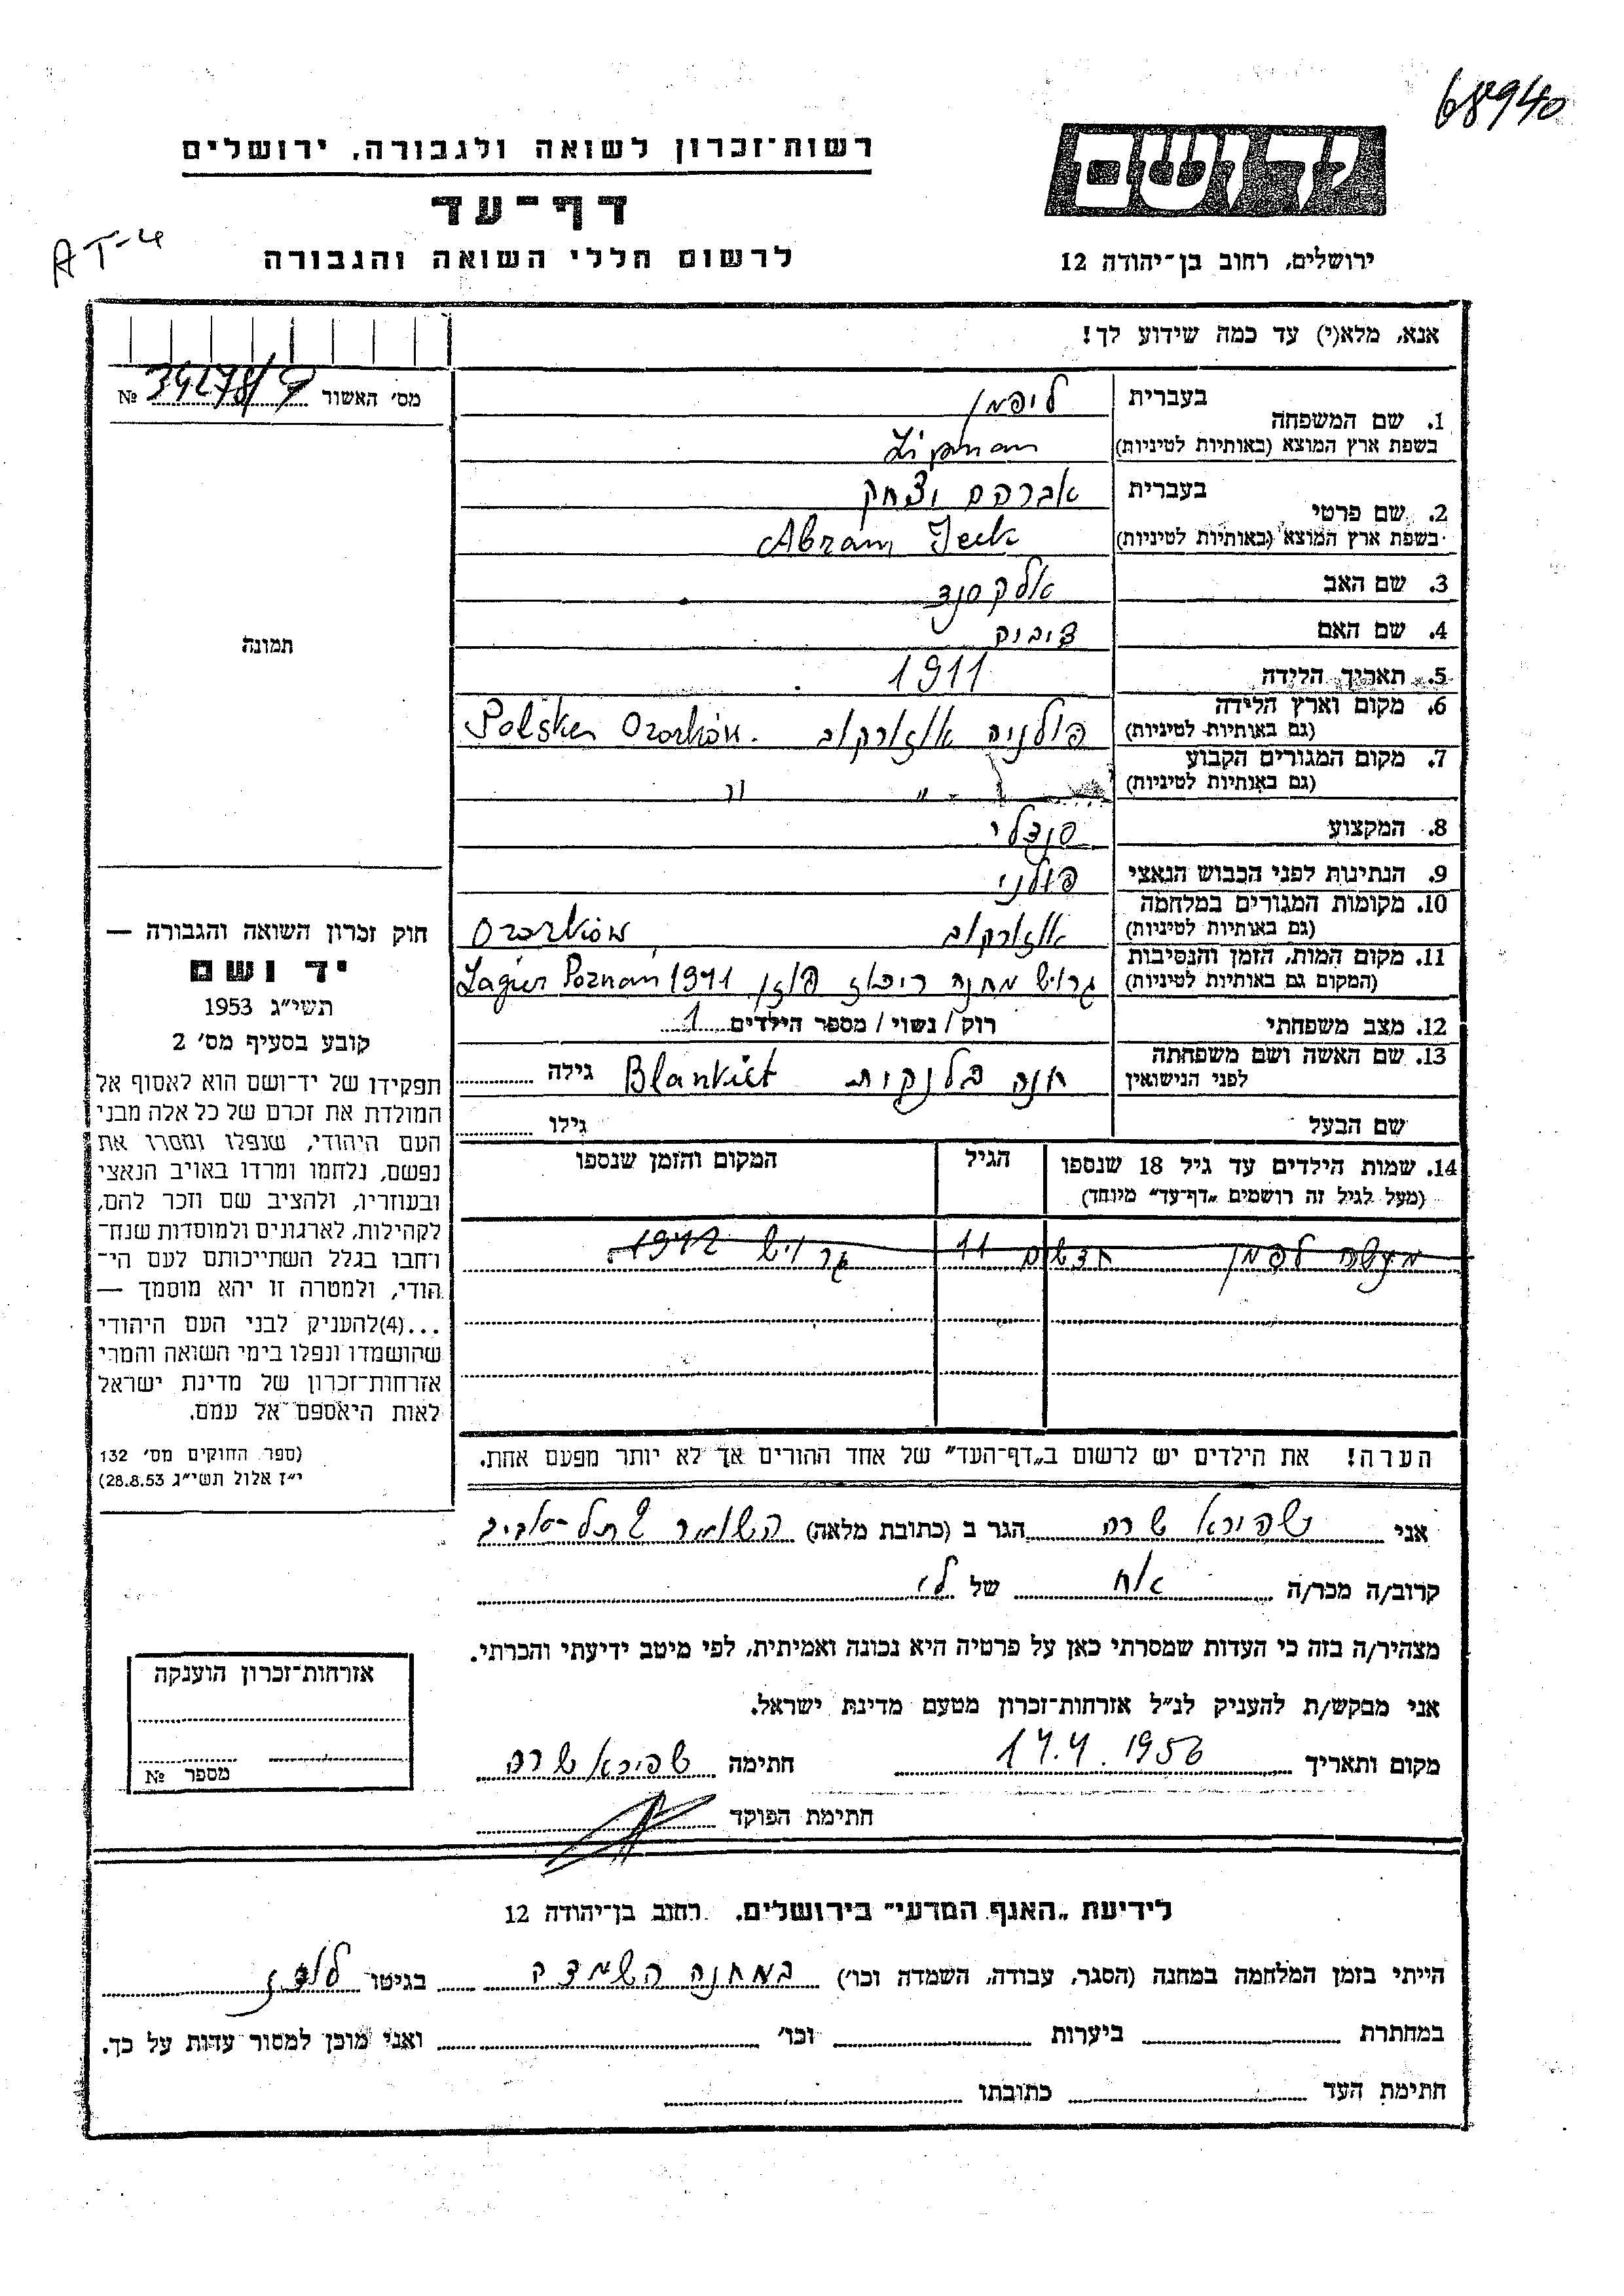 68940
יד ושם
רשות־זכרון לשואה ולגבורה, ירושלים
דף־עד
ירושלים, רחוב בן־יהודה 12
לרשום חללי השואה והגבורה
AT-4
אנא, מלא(י) עד כמה שידוע לך!
מס' האשור № 34278/
1. שם המשפחה בעברית ליפמן
בשפת ארץ המוצא (באותיות לטיניות) Lipman
2. שם פרטי בעברית אברהם יצחק
בשפת ארץ המוצא (באותיות לטיניות) Abram Icek
3. שם האב אלקסנד
4. שם האם
תמונה
5. תאריך הלידה 1911
6. מקום וארץ הלידה (גם באותיות לטיניות) פולניה אוזורקוב Polska Ozorków.
7. מקום המגורים הקבוע (גם באותיות לטיניות) " "
8. המקצוע סנדלר
9. הנתינות לפני הכבוש הנאצי פולני
10. מקומות המגורים במלחמה (גם באותיות לטיניות) אוזורקוב Ozorków
11. מקום המות, הזמן והנסיבות (המקום גם באותיות לטיניות) גרויש מחנה ריכוז פוזן 1941 Lagier Poznam
12. מצב משפחתי רוק / נשוי / מספר הילדים 1
13. שם האשה ושם משפחתה לפני הנישואין חנה בלנקיט Blankiet גילה
שם הבעל גילו
14. שמות הילדים עד גיל 18 שנספו הגיל המקום והזמן שנספו
(מעל לגיל זה רושמים „דף־עד" מיוחד)
לפמן 11 חדשים גרויש 1942.
הערה! את הילדים יש לרשום ב„דף־העד" של אחד ההורים אך לא יותר מפעם אחת.
חוק זכרון השואה והגבורה —
יד ושם
תשי"ג 1953
קובע בסעיף מס' 2
תפקידו של יד־ושם הוא לאסוף אל
המולדת את זכרם של כל אלה מבני
העם היהודי, שנפלו ומסרו את
נפשם, נלחמו ומרדו באויב הנאצי
ובעוזריו, ולהציב שם וזכר להם,
לקהילות, לארגונים ולמוסדות שנח־
רחבו בגלל השתייכותם לעם הי־
הודי, ולמטרה זו יהא מוסמך —
...(4)להעניק לבני העם היהודי
שהושמדו ונפלו בימי השואה והמרי
אזרחות־זכרון של מדינת ישראל
לאות היאספם אל עמם.
(ספר החוקים מס' 132
י"ז אלול תשי"ג 28.8.53)
אני שפירא שרה הגר ב (כתובת מלאה) תל־אביב
קרוב/ה מכר/ה אח של לי
מצהיר/ה בזה כי העדות שמסרתי כאן על פרטיה היא נכונה ואמיתית, לפי מיטב ידיעתי והכרתי.
אני מבקש/ת להעניק לנ"ל אזרחות־זכרון מטעם מדינת ישראל.
מקום ותאריך 14.4.1956 חתימה שפירא שרה
חתימת הפוקד
אזרחות־זכרון הוענקה
מספר №
לידיעת „האגף המדעי" בירושלים. רחוב בן־יהודה 12
הייתי בזמן המלחמה במחנה (הסגר, עבודה, השמדה וכו') במחנה השמדה בגיטו לודז
במחתרת ביערות וכו' ואני מוכן למסור עדות על כך.
חתימת העד כתובתו